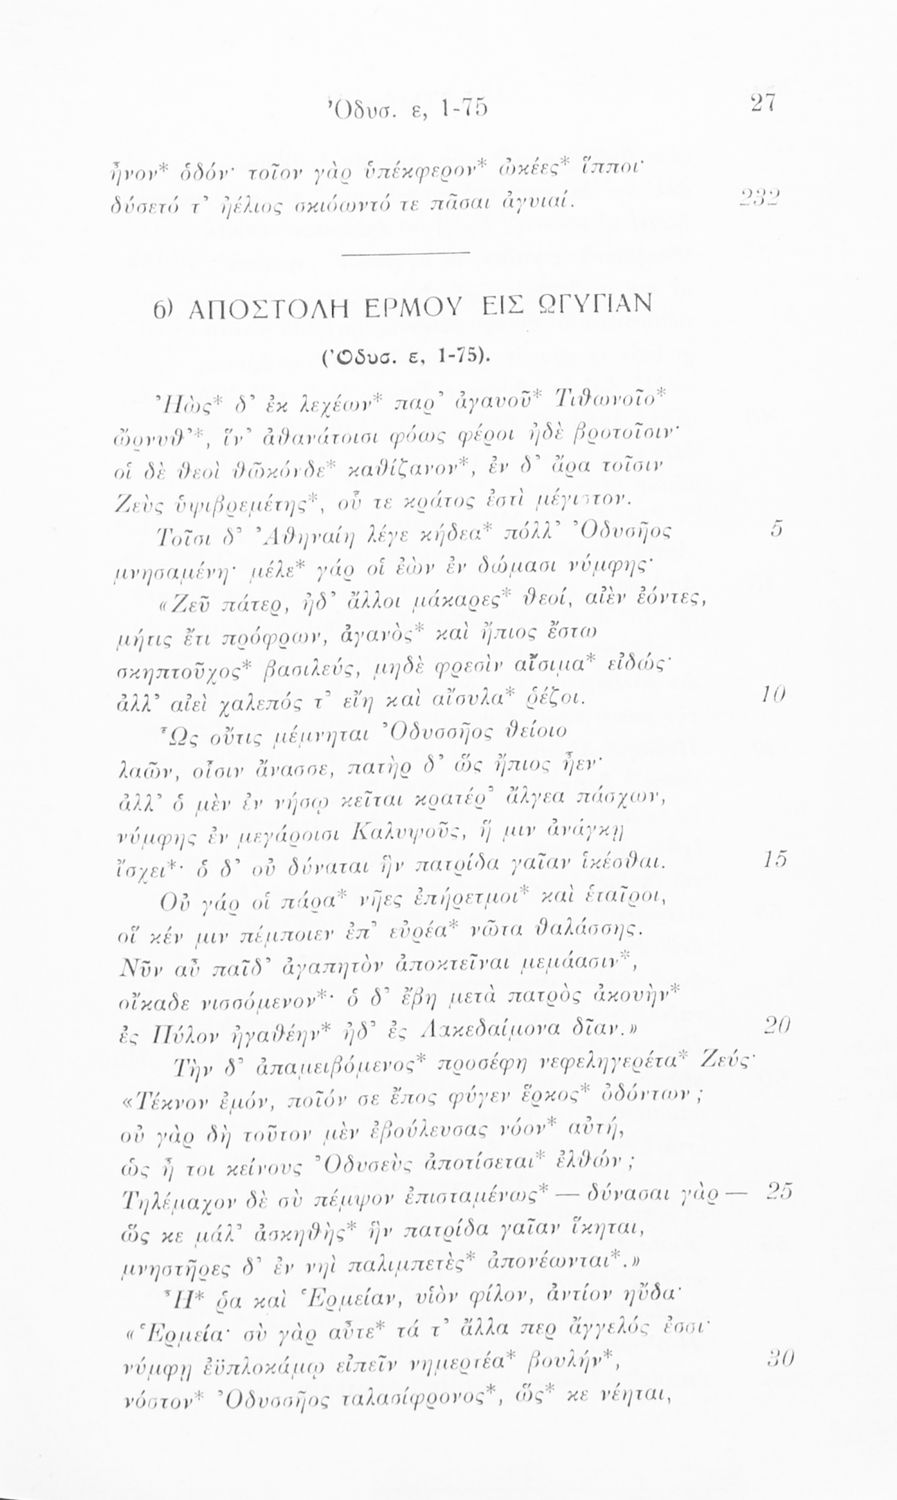 Ὀδυσ. ε, 1-75 27
ἦνον* ὁδόν· τοῖον γὰρ ὑπέκφερον* ὠκέες* ἵπποι·
δύσετό τ’ ἠέλιος σκιόωντό τε πᾶσαι ἀγυιαί. 232
6) ΑΠΟΣΤΟΛΗ ΕΡΜΟΥ ΕΙΣ ΩΓΥΓΙΑΝ
(Ὀδυσ. ε, 1-75).
Ἠὼς* δ’ ἐκ λεχέων* παρ’ ἀγαυοῦ* Τιθωνοῖο*
ὤρνυθ’*, ἵν’ ἀθανάτοισι φόως φέροι ἠδὲ βροτοῖσιν·
οἱ δὲ θεοὶ θῶκόνδε* καθίζανον*, ἐν δ’ ἄρα τοῖσιν
Ζεὺς ὑψιβρεμέτης*, οὗ τε κράτος ἐστὶ μέγιστον.
Τοῖσι δ’ Ἀθηναίη λέγε κήδεα* πόλλ’ Ὀδυσῆος 5
μνησαμένη· μέλε* γάρ οἱ ἐὼν ἐν δώμασι νύμφης·
«Ζεῦ πάτερ, ἠδ’ ἄλλοι μάκαρες* θεοί, αἰὲν ἐόντες,
μήτις ἔτι πρόφρων, ἀγανὸς* καὶ ἤπιος ἔστω
σκηπτοῦχος* βασιλεύς, μηδὲ φρεσὶν αἴσιμα* εἰδώς·
ἀλλ’ αἰεὶ χαλεπός τ’ εἴη καὶ αἴσυλα* ῥέζοι. 10
Ὣς οὔτις μέμνηται Ὀδυσσῆος θείοιο
λαῶν, οἷσιν ἄνασσε, πατὴρ δ’ ὣς ἤπιος ἦεν·
ἀλλ’ ὁ μὲν ἐν νήσῳ κεῖται κρατέρ’ ἄλγεα πάσχων,
νύμφης ἐν μεγάροισι Καλυψοῦς, ἥ μιν ἀνάγκῃ
ἴσχει*· ὁ δ’ οὐ δύναται ἣν πατρίδα γαῖαν ἱκέσθαι. 15
Οὐ γάρ οἱ πάρα* νῆες ἐπήρετμοι* καὶ ἑταῖροι,
οἵ κέν μιν πέμποιεν ἐπ’ εὐρέα* νῶτα θαλάσσης.
Νῦν αὖ παῖδ’ ἀγαπητὸν ἀποκτεῖναι μεμάασιν*,
οἴκαδε νισσόμενον*· ὁ δ’ ἔβη μετὰ πατρὸς ἀκουὴν*
ἐς Πύλον ἠγαθέην* ἠδ’ ἐς Λακεδαίμονα δῖαν.» 20
Τὴν δ’ ἀπαμειβόμενος* προσέφη νεφεληγερέτα* Ζεύς·
«Τέκνον ἐμόν, ποῖόν σε ἔπος φύγεν ἕρκος* ὀδόντων ;
οὐ γὰρ δὴ τοῦτον μὲν ἐβούλευσας νόον* αὐτή,
ὡς ἦ τοι κείνους Ὀδυσεὺς ἀποτίσεται* ἐλθών ;
Τηλέμαχον δὲ σὺ πέμψον ἐπισταμένως* — δύνασαι γὰρ — 25
ὥς κε μάλ’ ἀσκηθὴς* ἣν πατρίδα γαῖαν ἵκηται,
μνηστῆρες δ’ ἐν νηὶ παλιμπετὲς* ἀπονέωνται*.»
Ἦ* ῥα καὶ Ἑρμείαν, υἱὸν φίλον, ἀντίον ηὔδα·
«Ἑρμεία· σὺ γὰρ αὖτε* τά τ’ ἄλλα περ ἄγγελός ἐσσι·
νύμφῃ ἐϋπλοκάμῳ εἰπεῖν νημερτέα* βουλήν*, 30
νόστον* Ὀδυσσῆος ταλασίφρονος*, ὥς* κε νέηται,